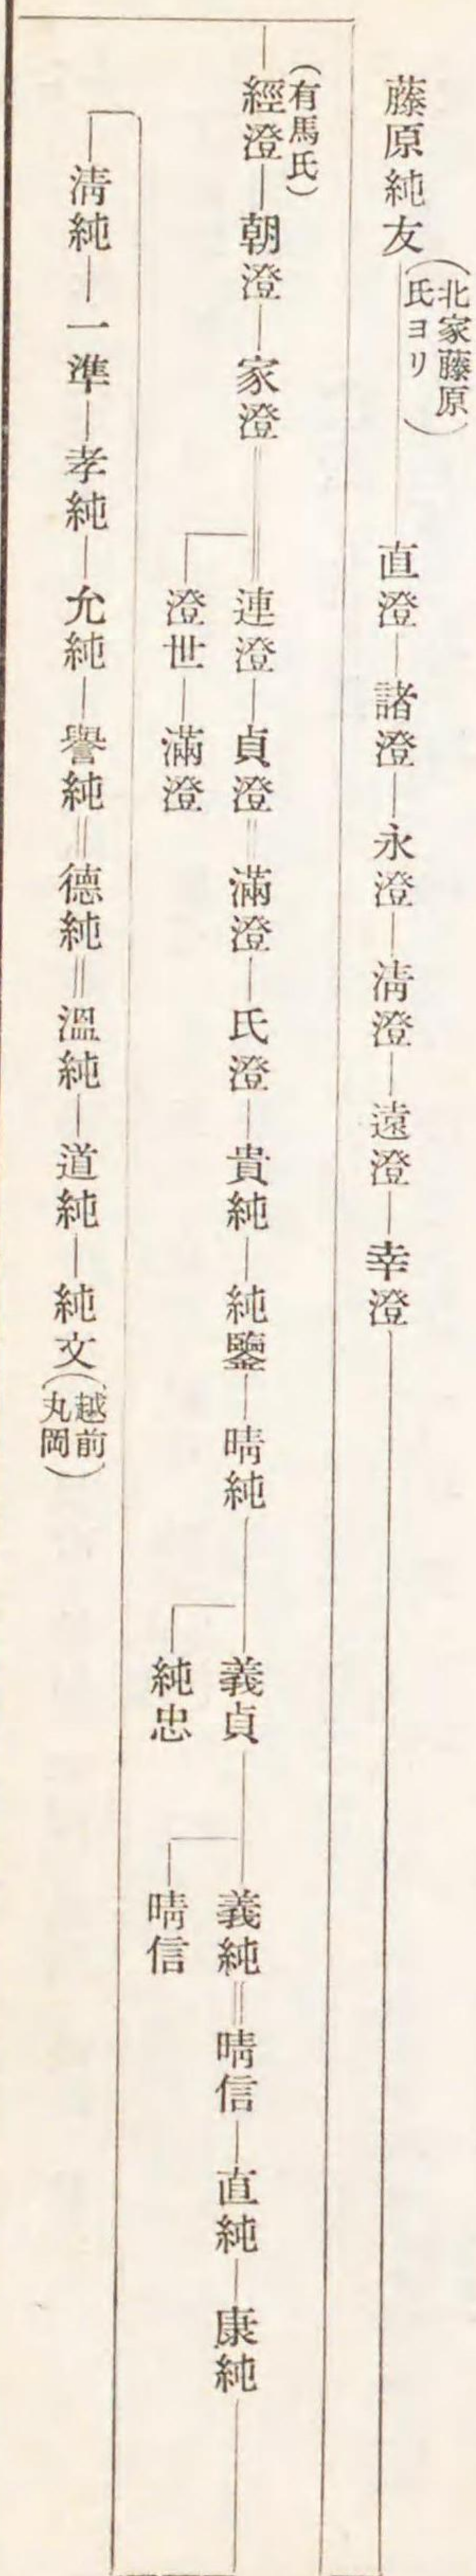 藤原純友(北家藤原氏ヨリ)―直澄―諸澄―永澄―淸澄―遠澄―幸澄
(有馬氏)
經澄―朝澄―家澄=連澄―貞澄=滿澄―氏澄―貴純―純鑒―晴純―義貞―義純=晴信―直純―康純
澄世―滿澄
純忠
晴信
淸純―一準―孝純―允純―譽純=德純=溫純―道純―純文(越前丸岡)